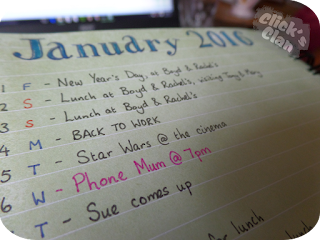 click's clan
January 2016
1 F - New Year's Day, at Boyd & Rachel's
2 S - Lunch at Boyd & Rachel's, visiting Tony & Mary
3 S - Lunch at Boyd & Rachel's
4 M - BACK TO WORK
5 T - Star Wars @ the cinema
6 W - Phone Mum @ 7pm
T - Sue comes up
for lunch